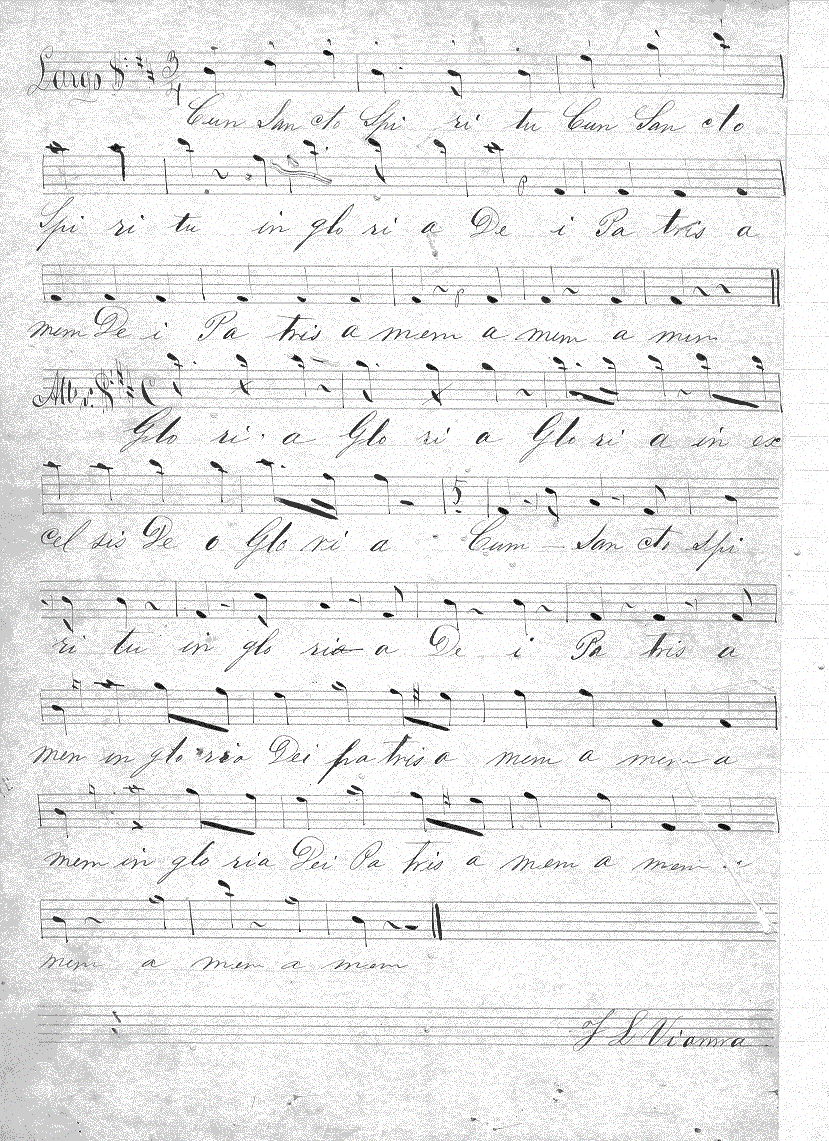 Largo 3/4
Cun San cto Spi ri tu Cun San cto
Spi ri tu in glo ri a De i Pa tris a
mem De i Pa tris a mem a mem a mem
All.º C
Glo ri a Glo ri a Glo ri a in ex
cel sis De o Glo ri a 5 Cum San cto Spi
ri tu in glo ria a De i Pa tris a
men in glo ria Dei pa tris a mem a mem a
mem in glo ria Dei Pa tris a mem a mem
mem a mem a mem
J L Vianna